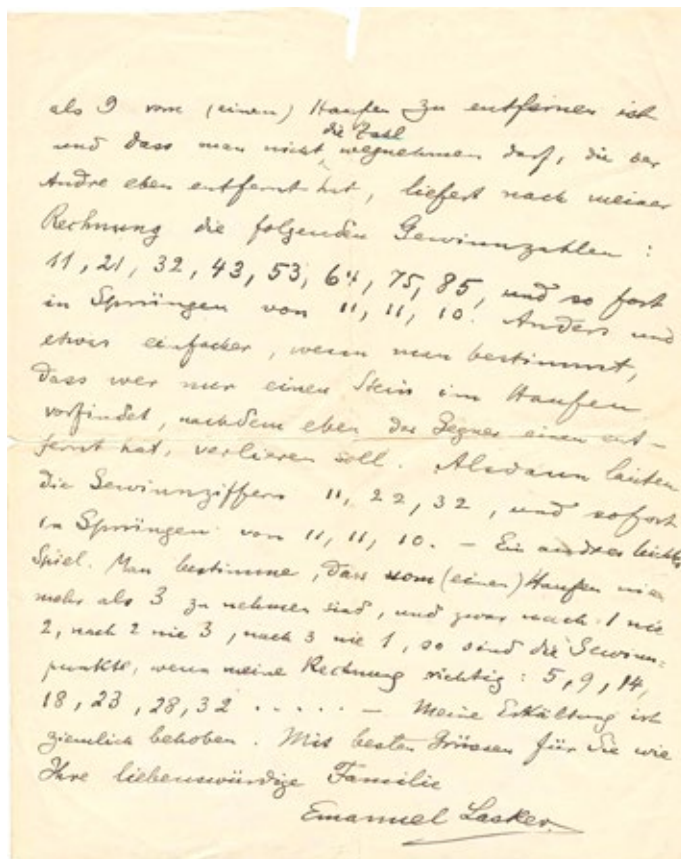 als 9 vom (einen) Haufen zu entfernen ist
und dass man nicht die Zahl wegnehmen darf, die der
Andre eben entfernt hat, liefert nach meiner
Rechnung die folgenden Gewinnzahlen :
11, 21, 32, 43, 53, 64, 75, 85, und so fort
in Sprüngen von 11, 11, 10. Anders und
etwas einfacher, wenn man bestimmt,
dass wer nur einen Stein im Haufen
vorfindet, nachdem eben der Gegner einen ent-
fernt hat, verlieren soll. Alsdann lauten
die Gewinnziffern 11, 22, 32, und sofort
in Sprüngen von 11, 11, 10. - Ein andres leichtes
Spiel. Man bestimme, dass vom (einen) Haufen nie
mehr als 3 zu nehmen sind, und zwar nach 1 nie
2, nach 2 nie 3, nach 3 nie 1, so sind die Gewinn=
punkte, wenn meine Rechnung richtig : 5, 9, 14,
18, 23, 28, 32 ..... - Meine Erkältung ist
ziemlich behoben. Mit besten Grüssen für Sie wie
Ihre liebenswürdige Familie
Emanuel Lasker.